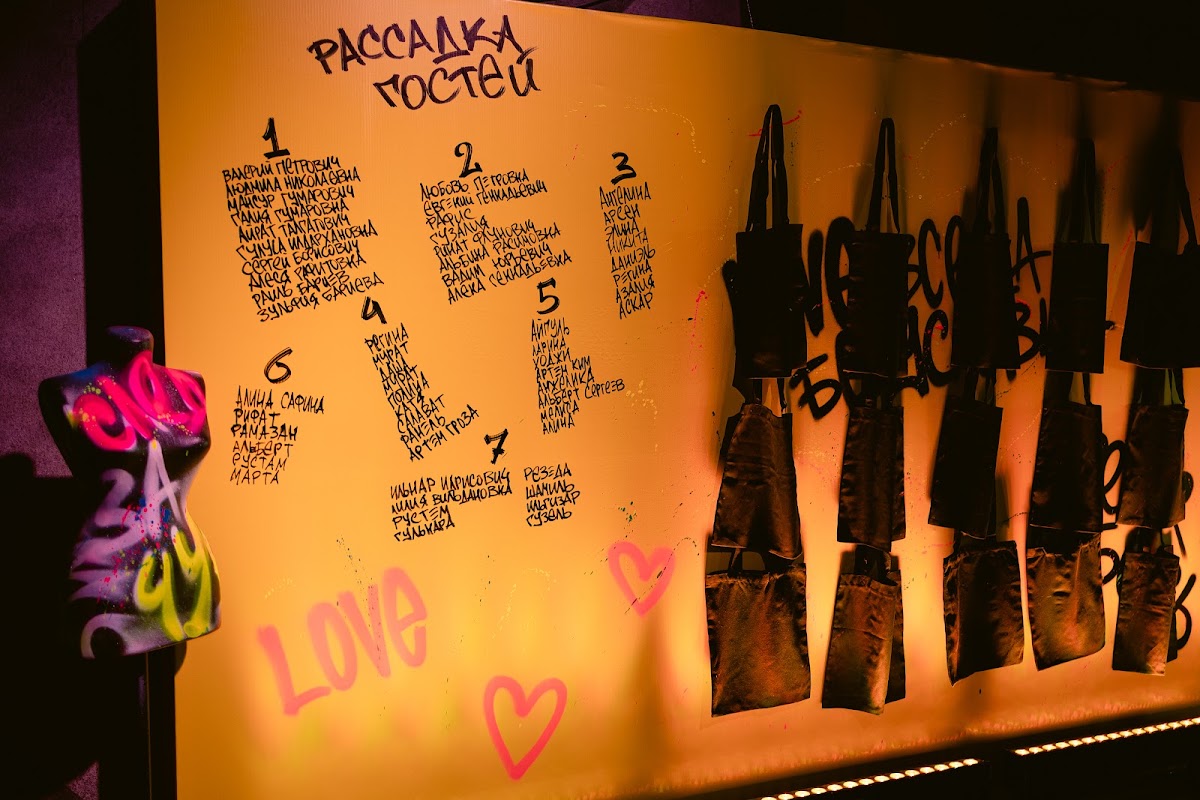 РАССАДКА
ГОСТЕЙ
1
ВАЛЕРИЙ ПЕТРОВИЧ
ЛЮДМИЛА НИКОЛАЕВНА
МАНСУР ГУМАРОВИЧ
ГАЛИЯ ГУМАРОВНА
АЙРАТ ТАЛГАТОВИЧ
ГУЛУСА ИЛДАРХАНОВНА
СЕРГЕЙ БОРИСОВИЧ
АЛЕСЯ РАФИТОВНА
РАИЛЬ БАРИЕВ
ЗУЛЬФИЯ БАРИЕВА
2
ЛЮБОВЬ ПЕТРОВНА
ЕВГЕНИЙ ГЕННАДЬЕВИЧ
РАФИС
ГУЗАЛИЯ
РИНАТ
АЛЬБИНА РАСИМОВНА
ВАДИМ ЮРЬЕВИЧ
АЛЕНА ГЕННАДЬЕВНА
3
АНГЕЛИНА
АРСЕН
ЭЛИНА
НИКИТА
ДАНИЭЛЬ
РЕГИНА
АЗАЛИЯ
АСКАР
4
РЕГИНА
МУРАТ
ЛАНА
МАРАТ
ПОЛИНА
САЛАВАТ
РАИЕЛЬ
АРТЕМ ГРОЗА
5
АЙГУЛЬ
КАРИНА
ХОДЖИ
АРТЕМ КИМ
АНЖЕЛИКА
АЛЬБЕРТ СЕРГЕЕВ
МЕЛИТА
АЛИНА
6
АЛИНА САФИНА
РИФАТ
РАМАЗАН
АЛЬБЕРТ
РУСТАМ
МАРТА
7
ИЛЬНАР ИДРИСОВИЧ
ЛИЛИЯ ВИЛЬДАНОВНА
РУСТЕМ
ГУЛЬНАРА
РЕЗЕДА
ШАМИЛЬ
ИЛЬГИЗАР
ГУЗЕЛЬ
LOVE